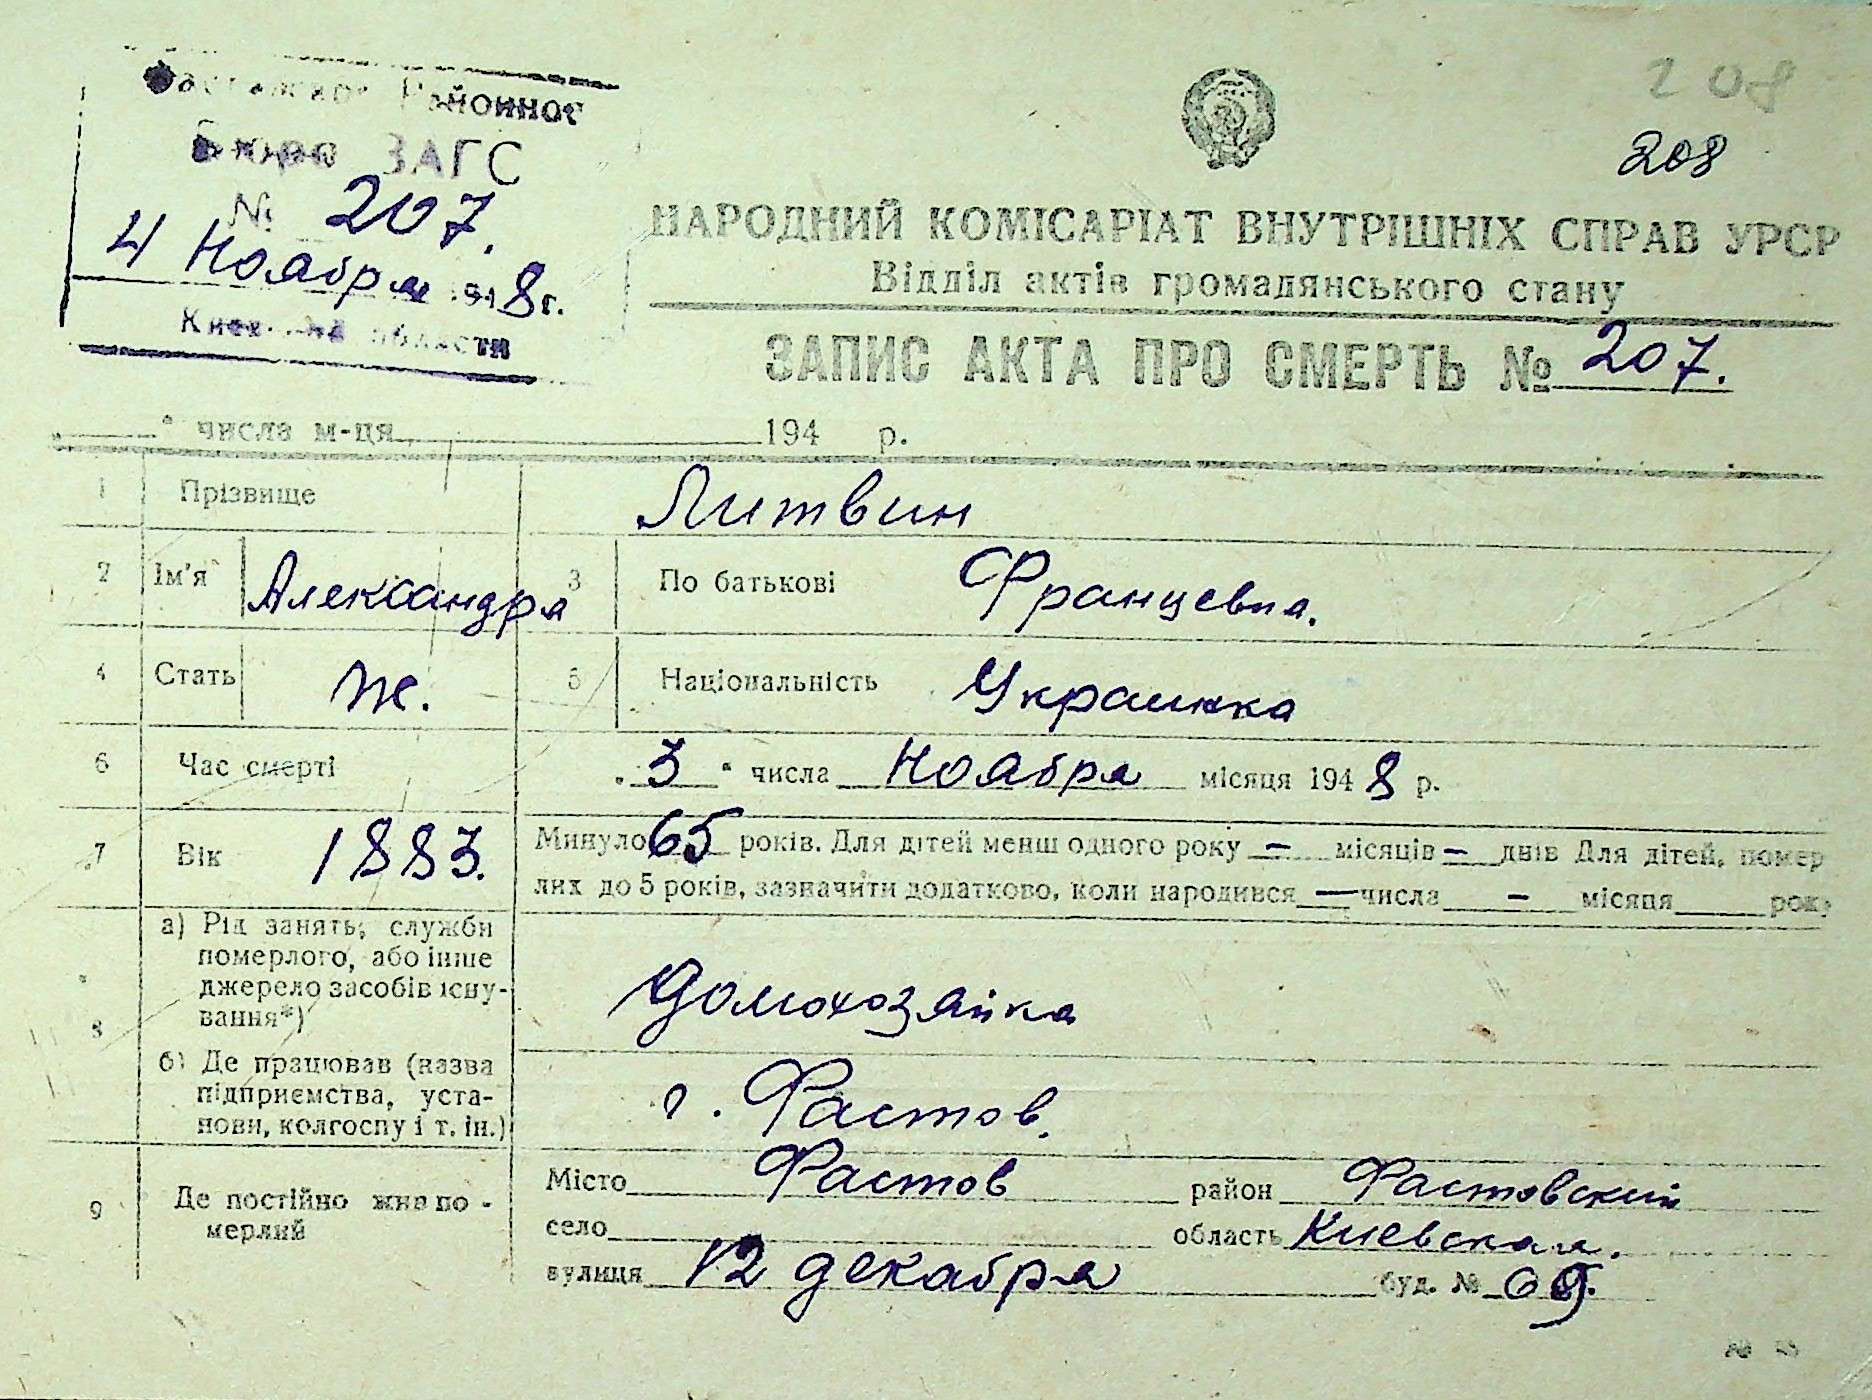 208
208
Районног
Бюро ЗАГС
№ 207.
4 Ноября 1948г.
области
НАРОДНИЙ КОМІСАРІАТ ВНУТРІШНІХ СПРАВ УРСР
Відділ актів громадянського стану
ЗАПИС АКТА ПРО СМЕРТЬ № 207.
" числа м-ця 194 р.
1 Прізвище Литвин
2 Ім'я Александра 3 По батькові Францевна.
4 Стать Ж. 5 Національність Украинка
6 Час смерті „3" числа Ноября місяця 1948 р.
7 Вік 1883. Минуло 65 років. Для дітей менш одного року – місяців – днів Для дітей, помер
лих до 5 років, зазначити додатково, коли народився — числа – місяця року
8 а) Рід занять, служби
померлого, або інше
джерело засобів існу-
вання*) Домохозяйка
б) Де працював (назва
підприємства, уста-
нови, колгоспу і т. ін.) г. Фастов.
9 Де постійно жив по-
мерлий
Місто Фастов район Фастовский
село область Киевская.
вулиця 12 декабря буд. №